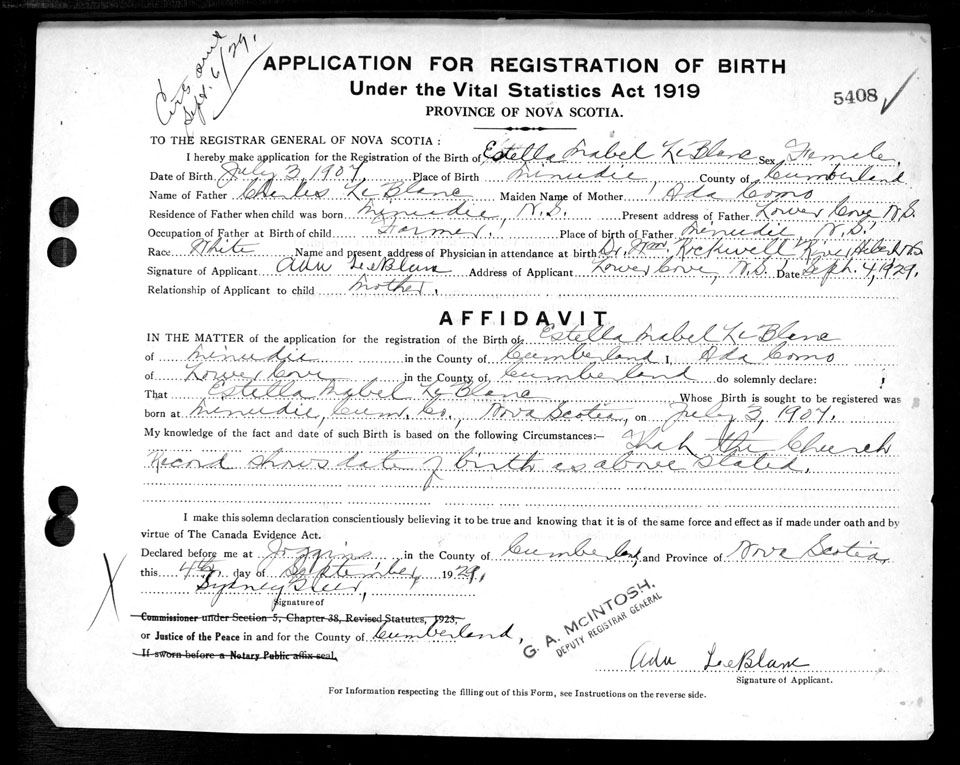 Sept. 6/29.
APPLICATION FOR REGISTRATION OF BIRTH
Under the Vital Statistics Act 1919
5408
PROVINCE OF NOVA SCOTIA.
TO THE REGISTRAR GENERAL OF NOVA SCOTIA :
I hereby make application for the Registration of the Birth of Estella Mabel LeBlanc Sex Female.
Date of Birth July 3, 1907, Place of Birth Minudie County of Cumberland
Name of Father Charles LeBlanc Maiden Name of Mother Ada Como
Residence of Father when child was born Minudie, N.S. Present address of Father Lower Cove N.S.
Occupation of Father at Birth of child Farmer. Place of birth of Father Minudie N.S.
Race White Name and present address of Physician in attendance at birth: Dr. Wm. Rockwell River Hebert NS
Signature of Applicant Ada LeeBlanc Address of Applicant Lower Cove, N.S. Date Sept. 4, 1929.
Relationship of Applicant to child Mother.
AFFIDAVIT
IN THE MATTER of the application for the registration of the Birth of Estella Mabel LeBlanc
of Minudie in the County of Cumberland I, Ada Como
of Lower Cove in the County of Cumberland do solemnly declare:
That Estella Mabel LeBlanc Whose Birth is sought to be registered was
born at Minudie, Cum. Co., Nova Scotia, on July 3, 1907.
My knowledge of the fact and date of such Birth is based on the following Circumstances:– That the Church
Record shows date of birth as above stated.
I make this solemn declaration conscientiously believing it to be true and knowing that it is of the same force and effect as if made under oath and by
virtue of The Canada Evidence Act.
Declared before me at Joggins in the County of Cumberland, and Province of Nova Scotia,
this 4th. day of September, 1929,
Sydney
Signature of
Commissioner under Section 5, Chapter 38, Revised Statutes, 1923,
or Justice of the Peace in and for the County of Cumberland,
If sworn before a Notary Public affix seal.
G. A. MCINTOSH.
DEPUTY REGISTRAR GENERAL
Ada LeeBlanc
Signature of Applicant.
For Information respecting the filling out of this Form, see Instructions on the reverse side.